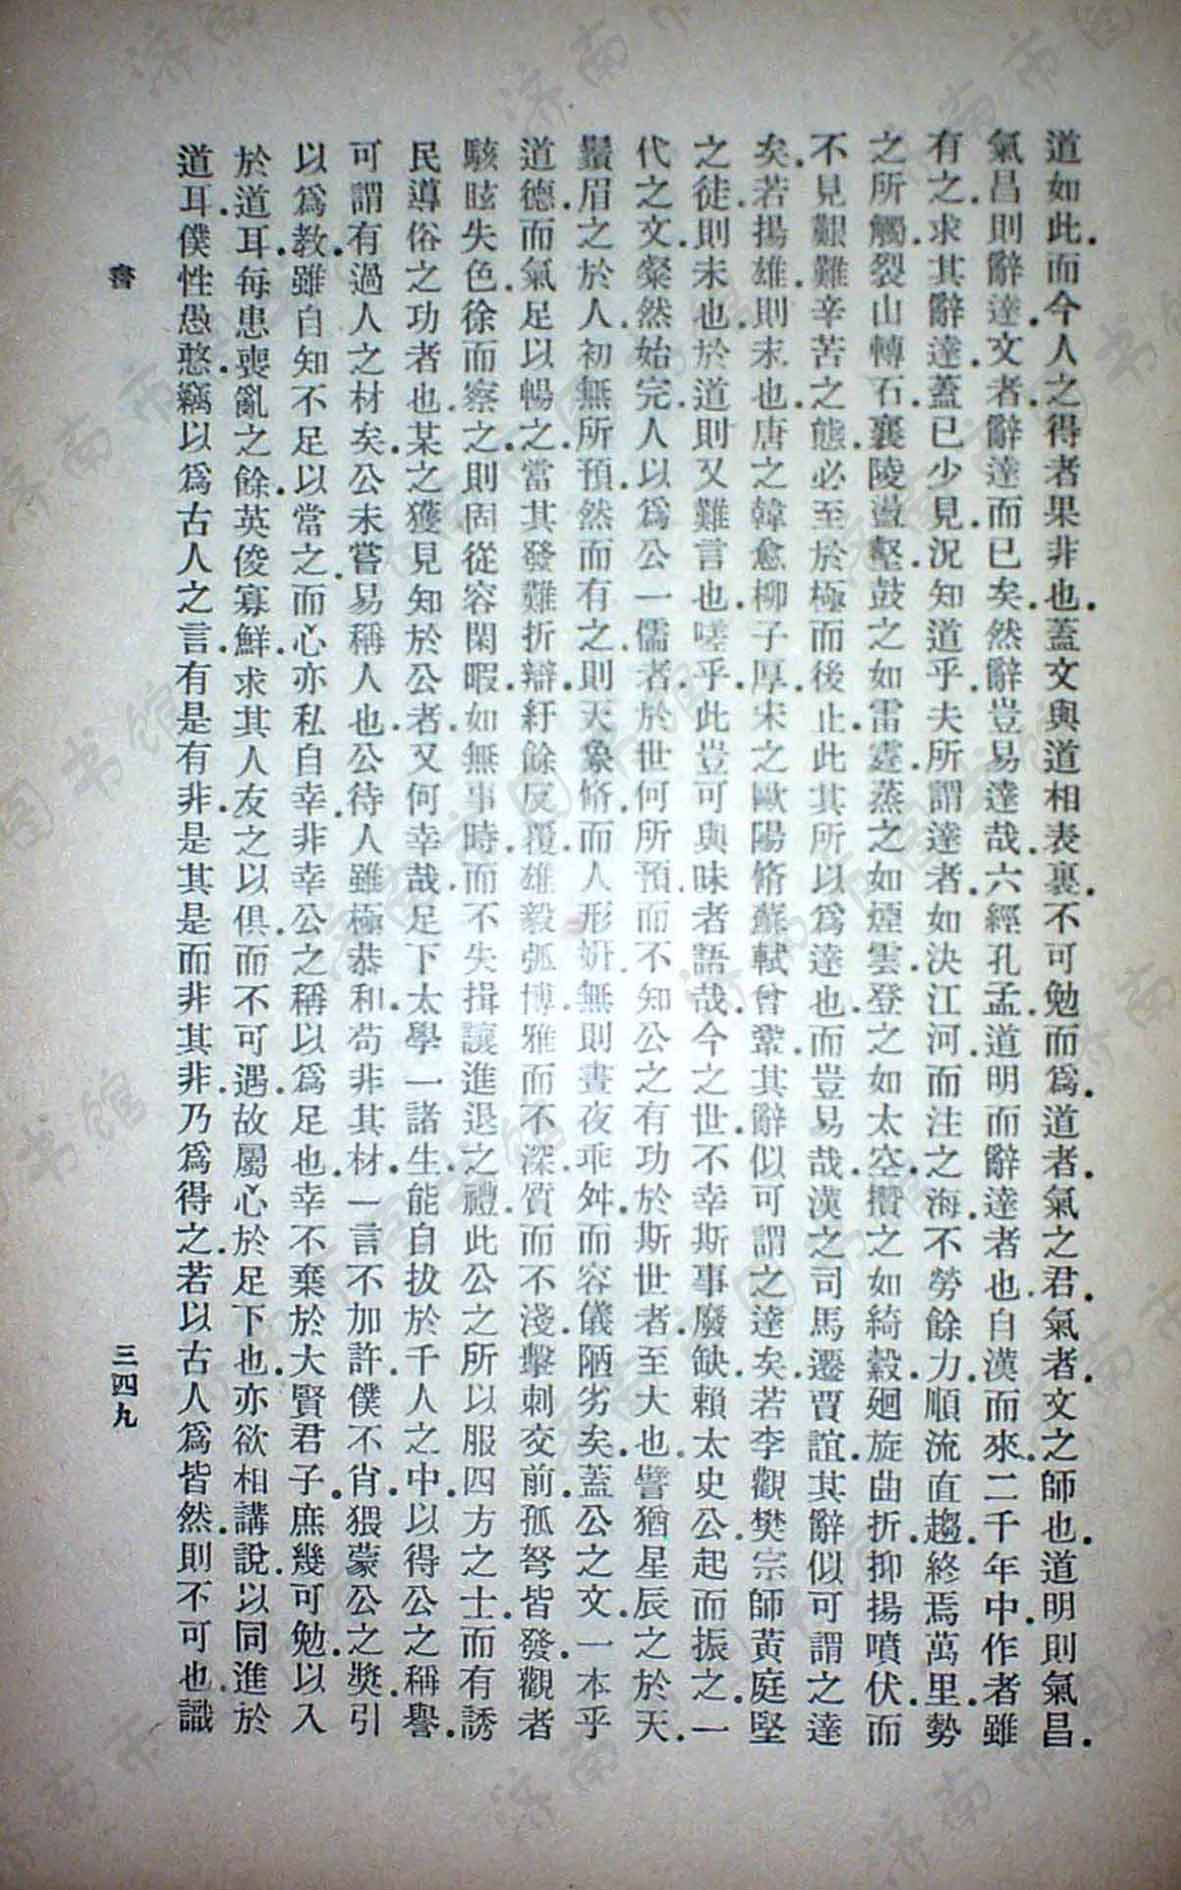 道如此.而今人之得者果非也.蓋文與道相表裏.不可勉而爲.道者.氣之君.氣者.文之師也.道明則氣昌.
氣昌則辭達.文者.辭達而已矣.然辭豈易達哉.六經孔孟.道明而辭達者也.自漢而來.二千年中.作者雖
有之.求其辭達.蓋已少見.況知道乎.夫所謂達者.如決江河.而注之海.不勞餘力.順流直趨.終焉萬里.勢
之所觸.裂山轉石.襄陵盪壑.鼓之如雷霆.蒸之如煙雲.登之如太空.攢之如綺縠.廻旋曲折.抑揚噴伏.而
不見艱難辛苦之態.必至於極而後止.此其所以爲達也.而豈易哉.漢之司馬遷.賈誼.其辭似可謂之達
矣.若揚雄.則末也.唐之韓愈.柳子厚.宋之歐陽脩.蘇軾.曾鞏.其辭似可謂之達矣.若李觀.樊宗師.黃庭堅
之徒.則未也.於道則又難言也.嗟乎.此豈可與昧者語哉.今之世.不幸斯事廢缺.賴太史公.起而振之.一
代之文.粲然始完.人以爲公一儒者.於世何所預.而不知公之有功於斯世者.至大也.譬猶星辰之於天.
鬚眉之於人.初無所預.然而有之.則天象脩.而人形姸.無則晝夜乖舛.而容儀陋劣矣.蓋公之文.一本乎
道德.而氣足以暢之.當其發難折辯.紆餘反覆.雄毅弧博.雅而不深.質而不淺.擊刺交前.孤弩皆發.觀者
駭眩失色.徐而察之.則固從容閑暇.如無事時.而不失揖讓進退之禮.此公之所以服四方之士.而有誘
民導俗之功者也.某之獲見知於公者.又何幸哉.足下.太學一諸生.能自拔於千人之中.以得公之稱譽.
可謂有過人之材矣.公未嘗易稱人也.公待人雖極恭和.苟非其材.一言不加許.僕不肖.猥蒙公之奬引
以爲教.雖自知不足以當之.而心亦私自幸.非幸公之稱以爲足也.幸不棄於大賢君子.庶幾可勉以入
於道耳.每患喪亂之餘.英俊寡鮮.求其人友之以俱.而不可遇.故屬心於足下也.亦欲相講說.以同進於
道耳.僕性愚憨.竊以爲古人之言.有是有非.是其是而非其非.乃爲得之.若以古人爲皆然.則不可也.識
書
三四九